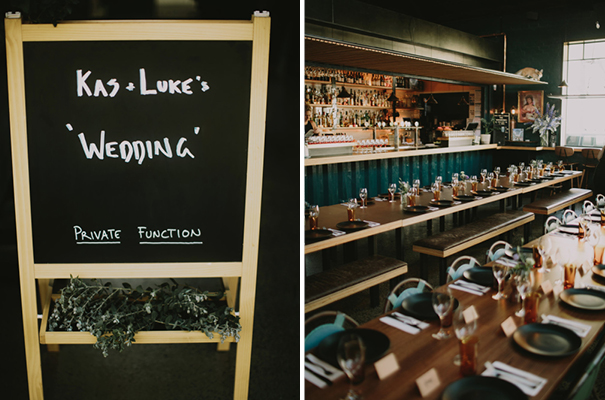 Kas + Luke's
'Wedding'
Private Function